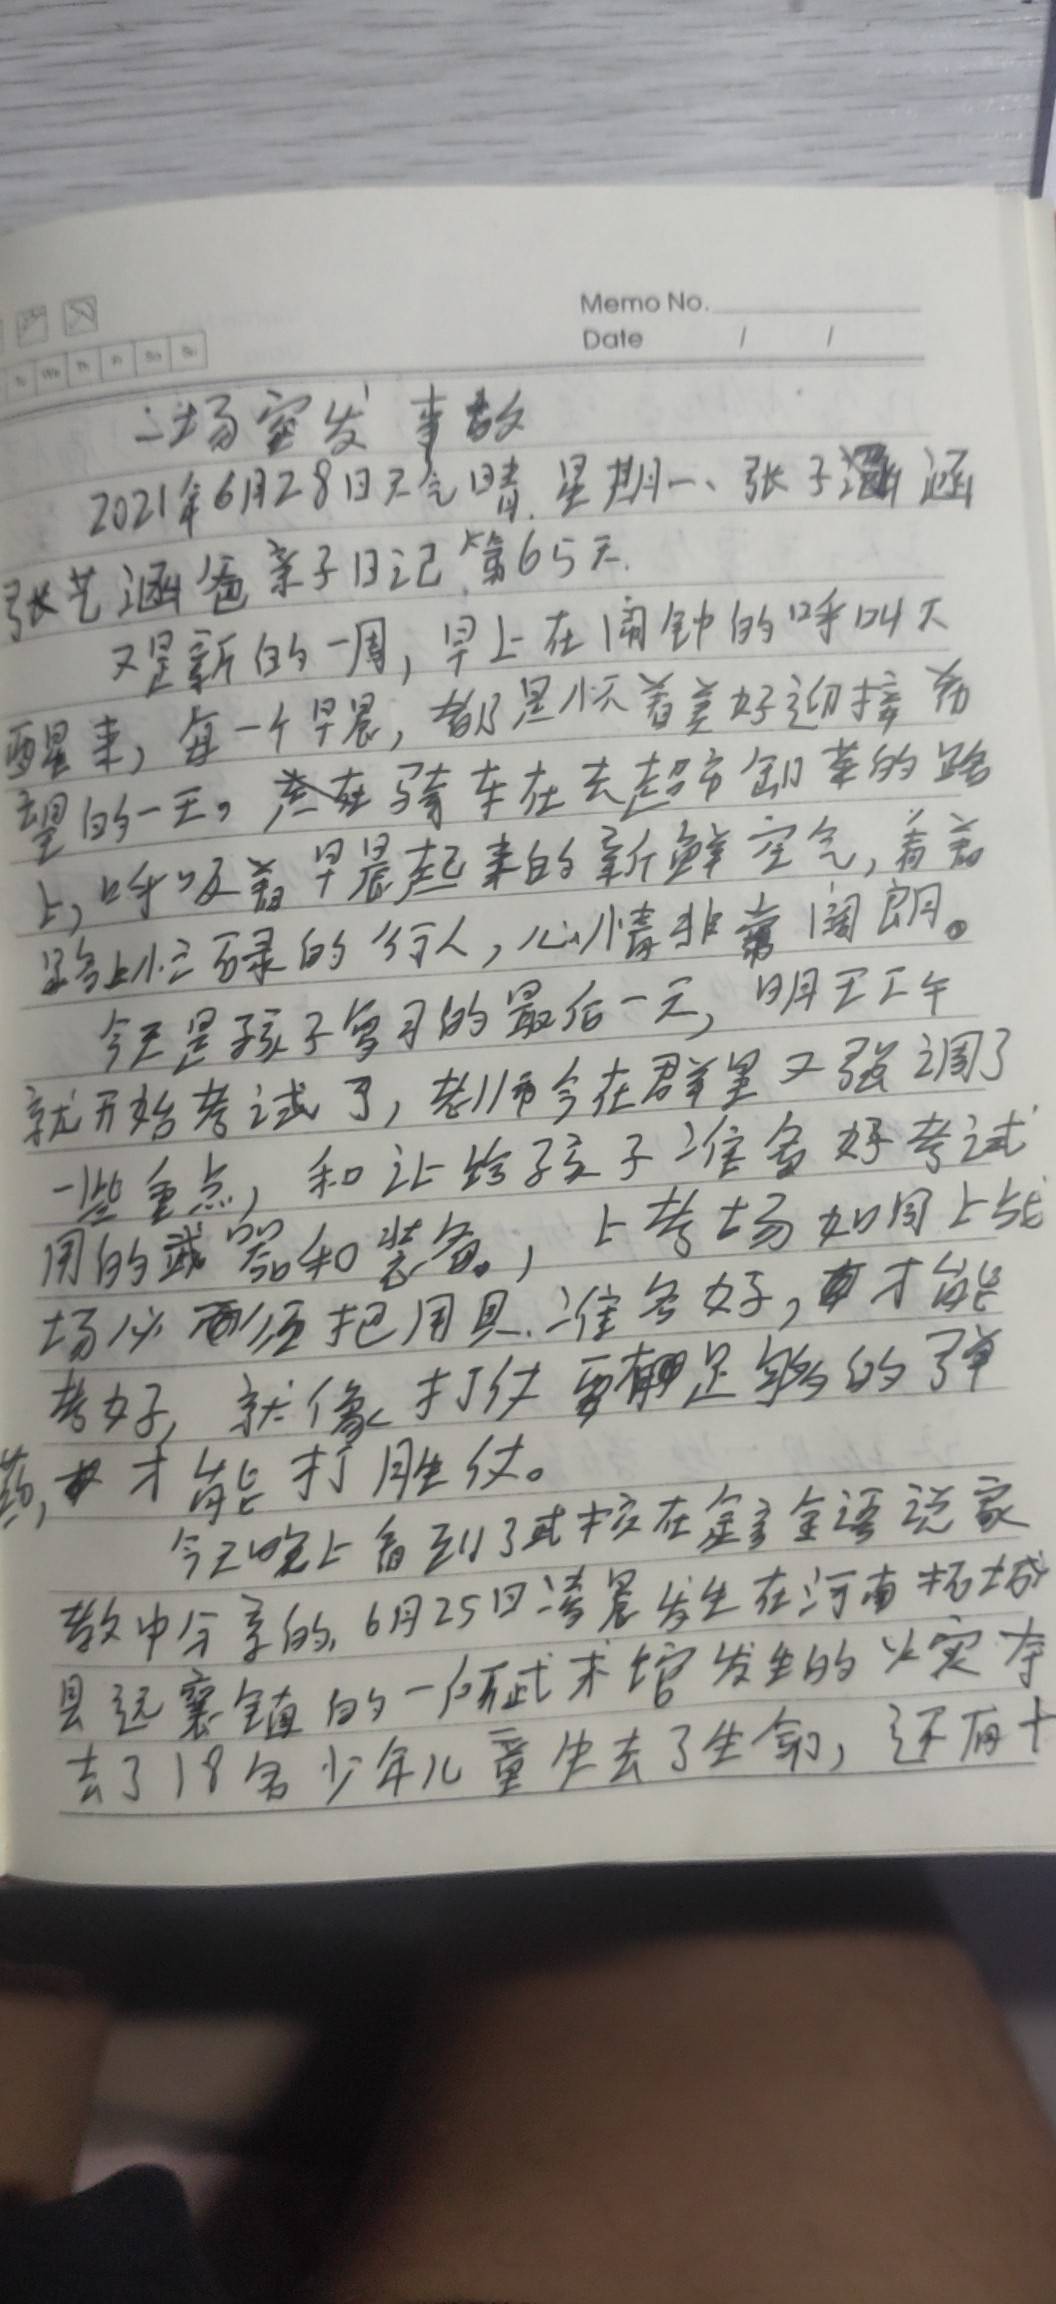 Memo No.
Date / /
Tu We Th Fr Sa Su
一场突发事故
2021年6月28日天气晴.星期一、张子涵
张艺涵爸亲子日记第65天.
又是新的一周,早上在闹钟的呼叫下
醒来,每一个早晨,都是怀着美好迎接希
望的一天。骑车在去超市卸菜的路
上,呼吸着早晨起来的新鲜空气,看着
路上忙碌的行人,心情非常阔朗。
今天是孩子复习的最后一天,明天下午
就开始考试了,老师今在群里又强调了
一些重点,和让给孩子准备好考试
用的武器和装备。,上考场如同上战
场必须把用具.准备好,才能
考好,就像打仗要有足够的弹
药,才能打胜仗。
今天晚上看到了武校在金言金语说家
教中分享的.6月25日凌晨发生在河南柘城
县远襄镇的一所武术馆发生的火灾夺
去了18名少年儿童失去了生命,还有十